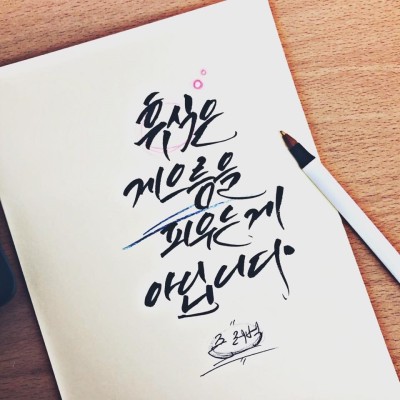 휴식은
게으름을
피우는 게
아닙니다.